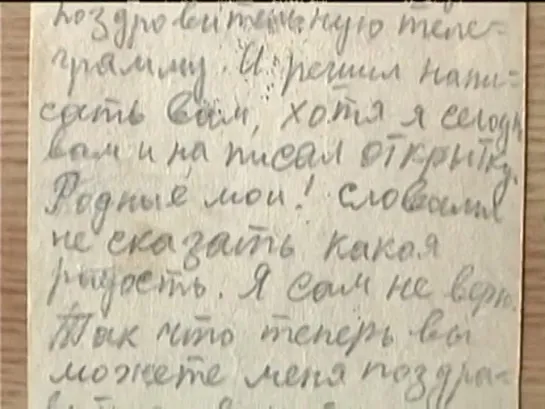 поздравительную теле=
грамму. И решил напи=
сать вам, хотя я сегодн
вам и написал открытку.
Родные мои! Словами
не сказать какая
радость. Я сам не верю.
Так что теперь вы
можете меня поздра=